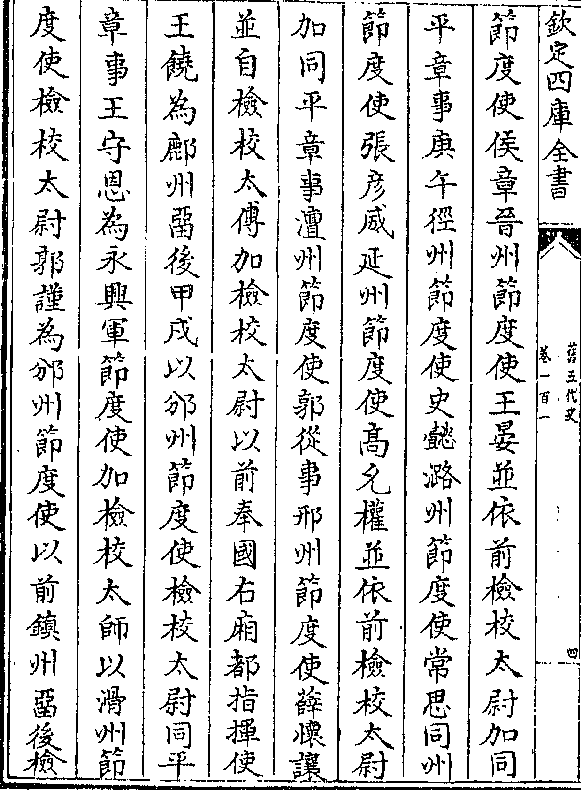 欽定四庫全書
舊五代史
卷一百一
四
節度使侯章晉州節度使王晏並依前檢校太尉加同
平章事庚午徑州節度使史懿潞州節度使常思同州
節度使張彦威延州節度使高允權並依前檢校太尉
加同平章事澶州節度使郭從事邢州節度使薛懷讓
並自檢校太傅加檢校太尉以前奉國右廂都指揮使
王饒為鄜州畱後甲戌以邠州節度使檢校太尉同平
章事王守恩為永興軍節度使加檢校太師以滑州節
度使檢校太尉郭謹為邠州節度使以前鎮州畱後檢